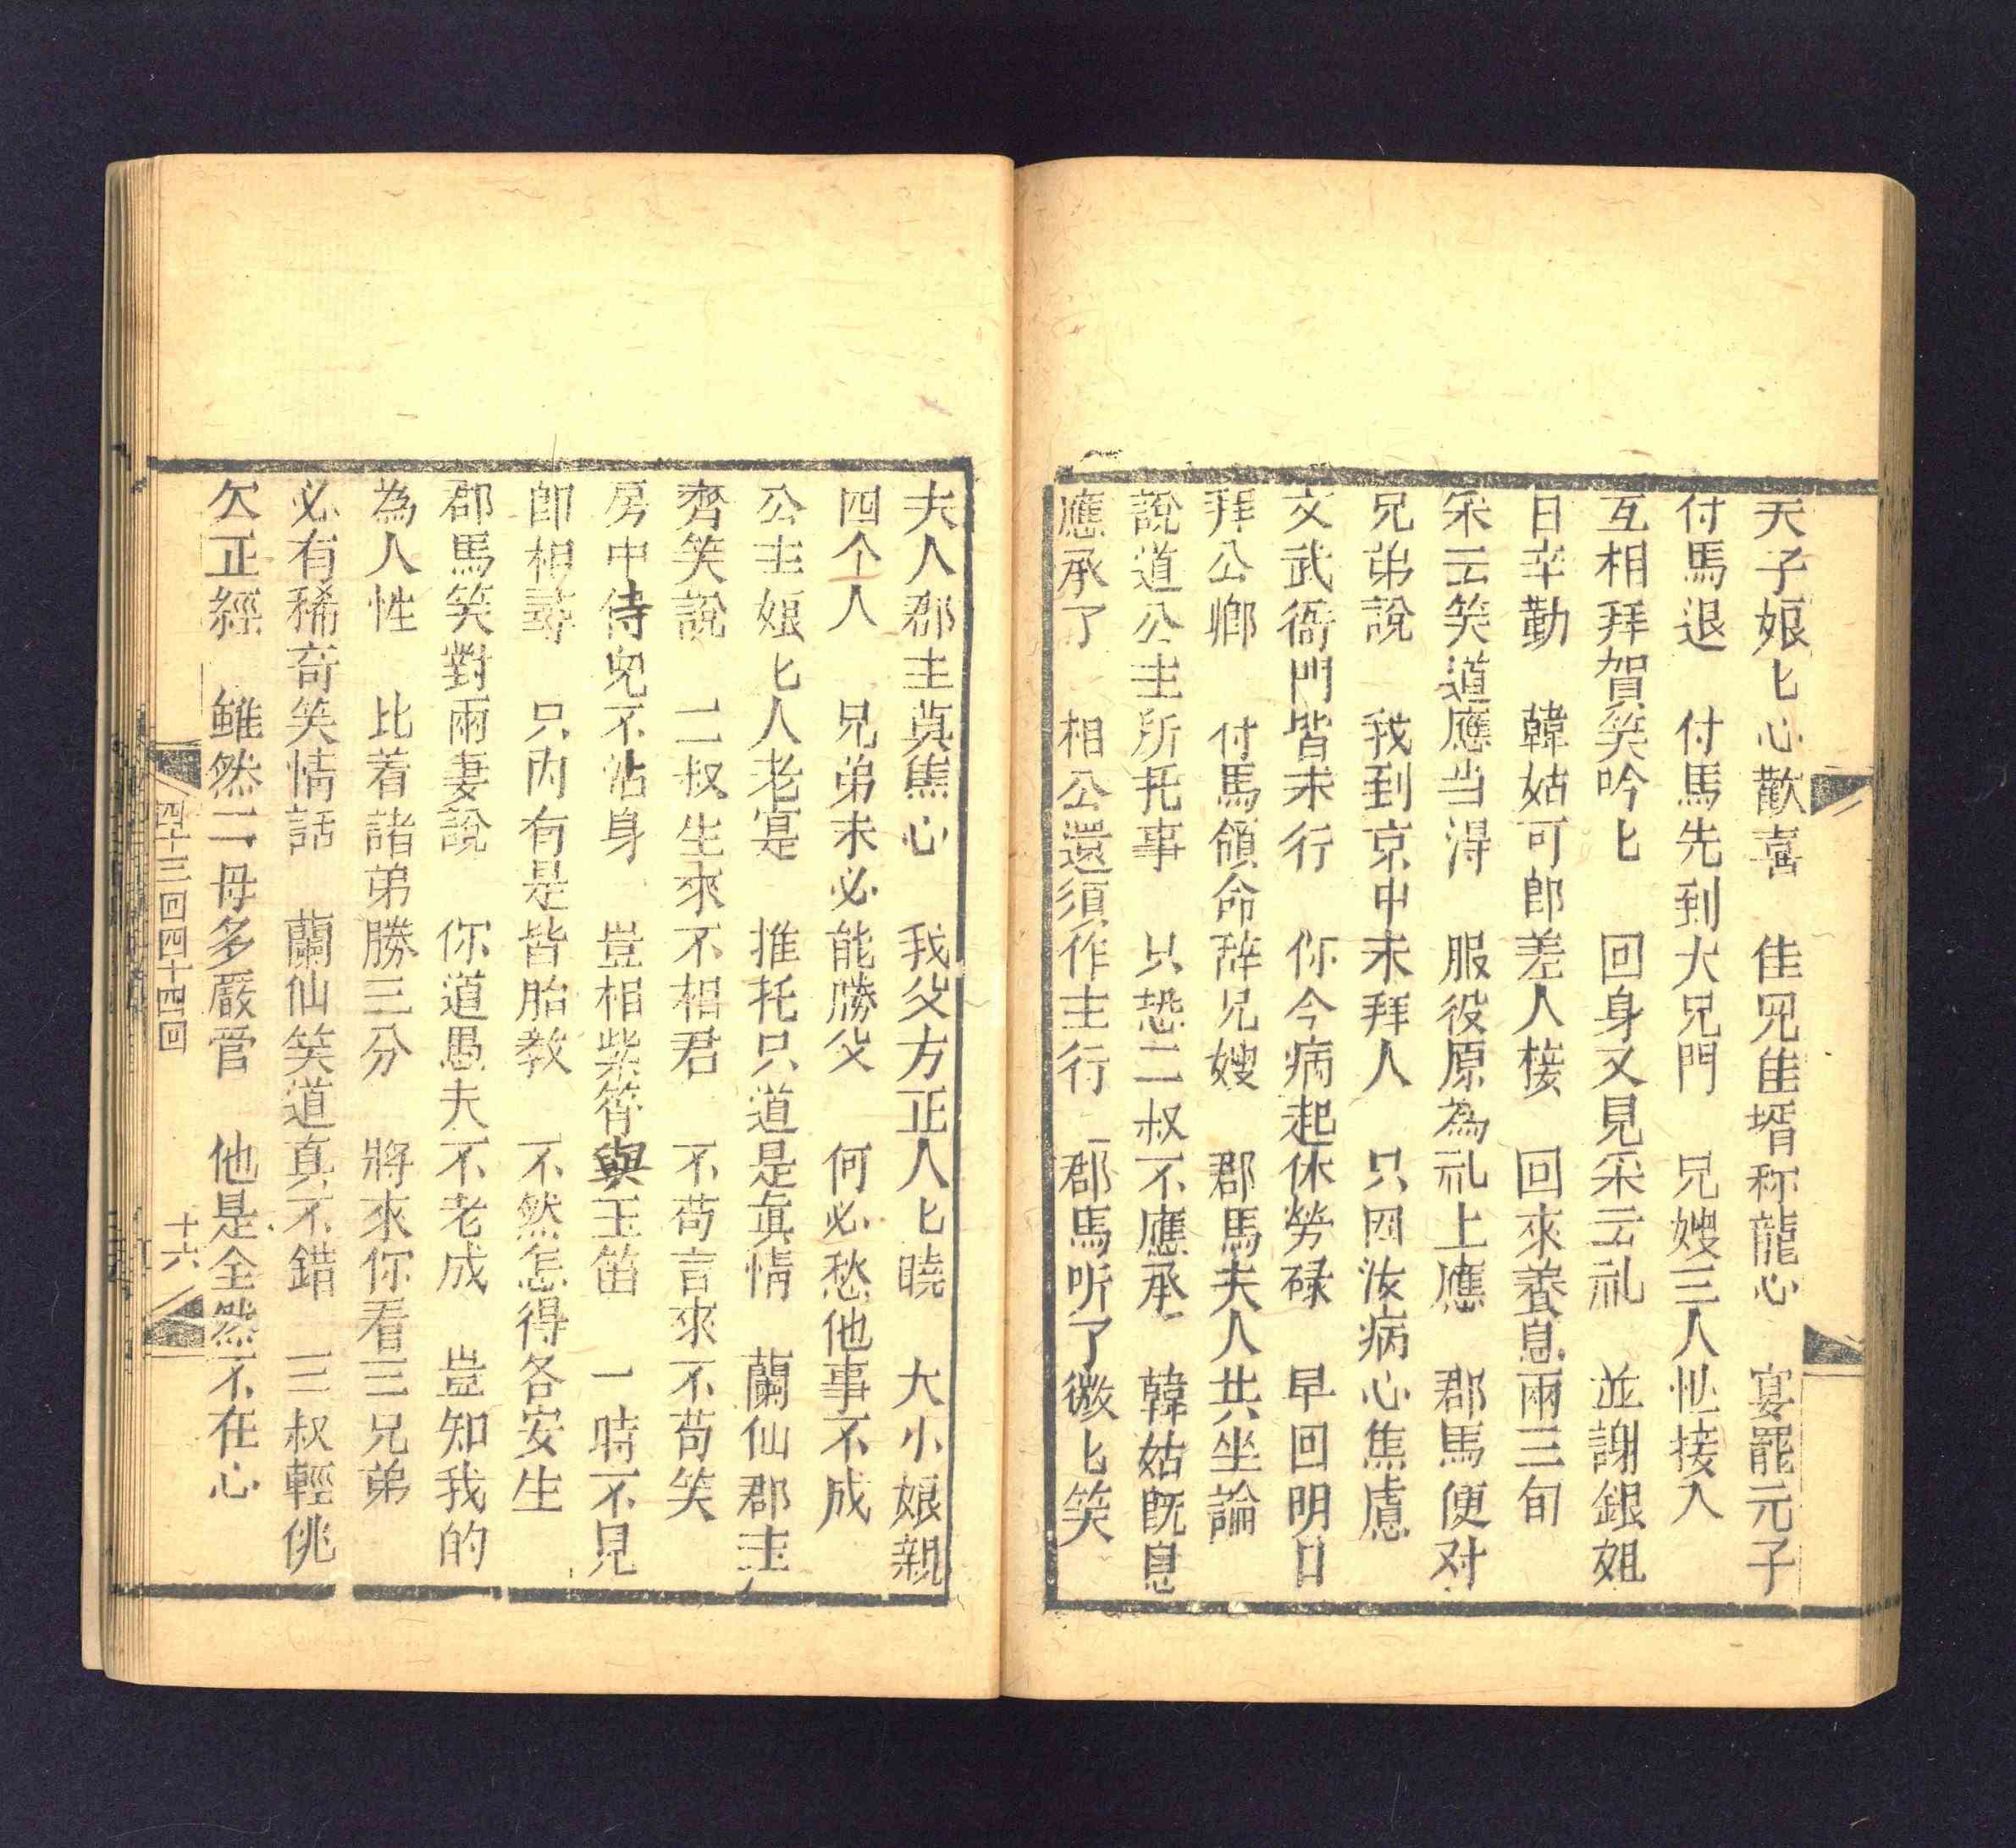 天子娘匕心歡喜　佳兒佳壻称龍心　宴罷元子
付馬退　付馬先到大兄門　兄嫂三人忙接入
互相拜賀笑吟匕　回身又見采云礼　並謝銀姐
日辛勤　韓姑可郎差人接　回來養息兩三旬
采云笑道應当得　服役原為礼上應　郡馬便对
兄弟說　我到京中未拜人　只因汝病心焦慮
文武衙門皆未行　你今病起休勞碌　早回明日
拜公鄉　付馬領命辞兄嫂　郡馬夫人共坐論
說道公主所托事　只恐二叔不應承　韓姑既息
應承了　相公還須作主行　郡馬听了微匕笑
夫人郡主莫焦心　我父方正人匕曉　大小娘親
四个人　兄弟未必能勝父　何必愁他事不成
公主娘匕人老寔　推托只道是真情　蘭仙郡主
齊笑說　二叔生來不相君　不苟言來不苟笑
房中侍兒不沾身　豈相紫簫與玉笛　一時不見
即相尋　只丙有是皆胎教　不然怎得各安生
郡馬笑對兩妻說　你道愚夫不老成　豈知我的
為人性　比着諸弟勝三分　將來你看三兄弟
必有稀奇笑情話　蘭仙笑道真不錯　三叔輕佻
欠正經　雖然二母多嚴管　他是全然不在心
四十三回四十四回　十六